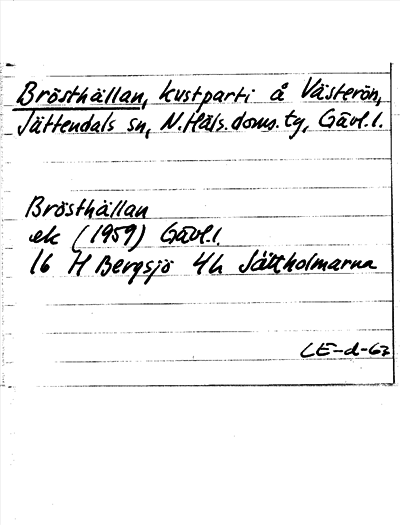 Brösthällan, kustparti å Västerön,
Jättendals sn, N.Häls.doms.tg, Gävl.l.
Brösthällan
ek (1959) Gävl.l.
16 H Bergsjö 4h Jättholmarna
CE-d-63